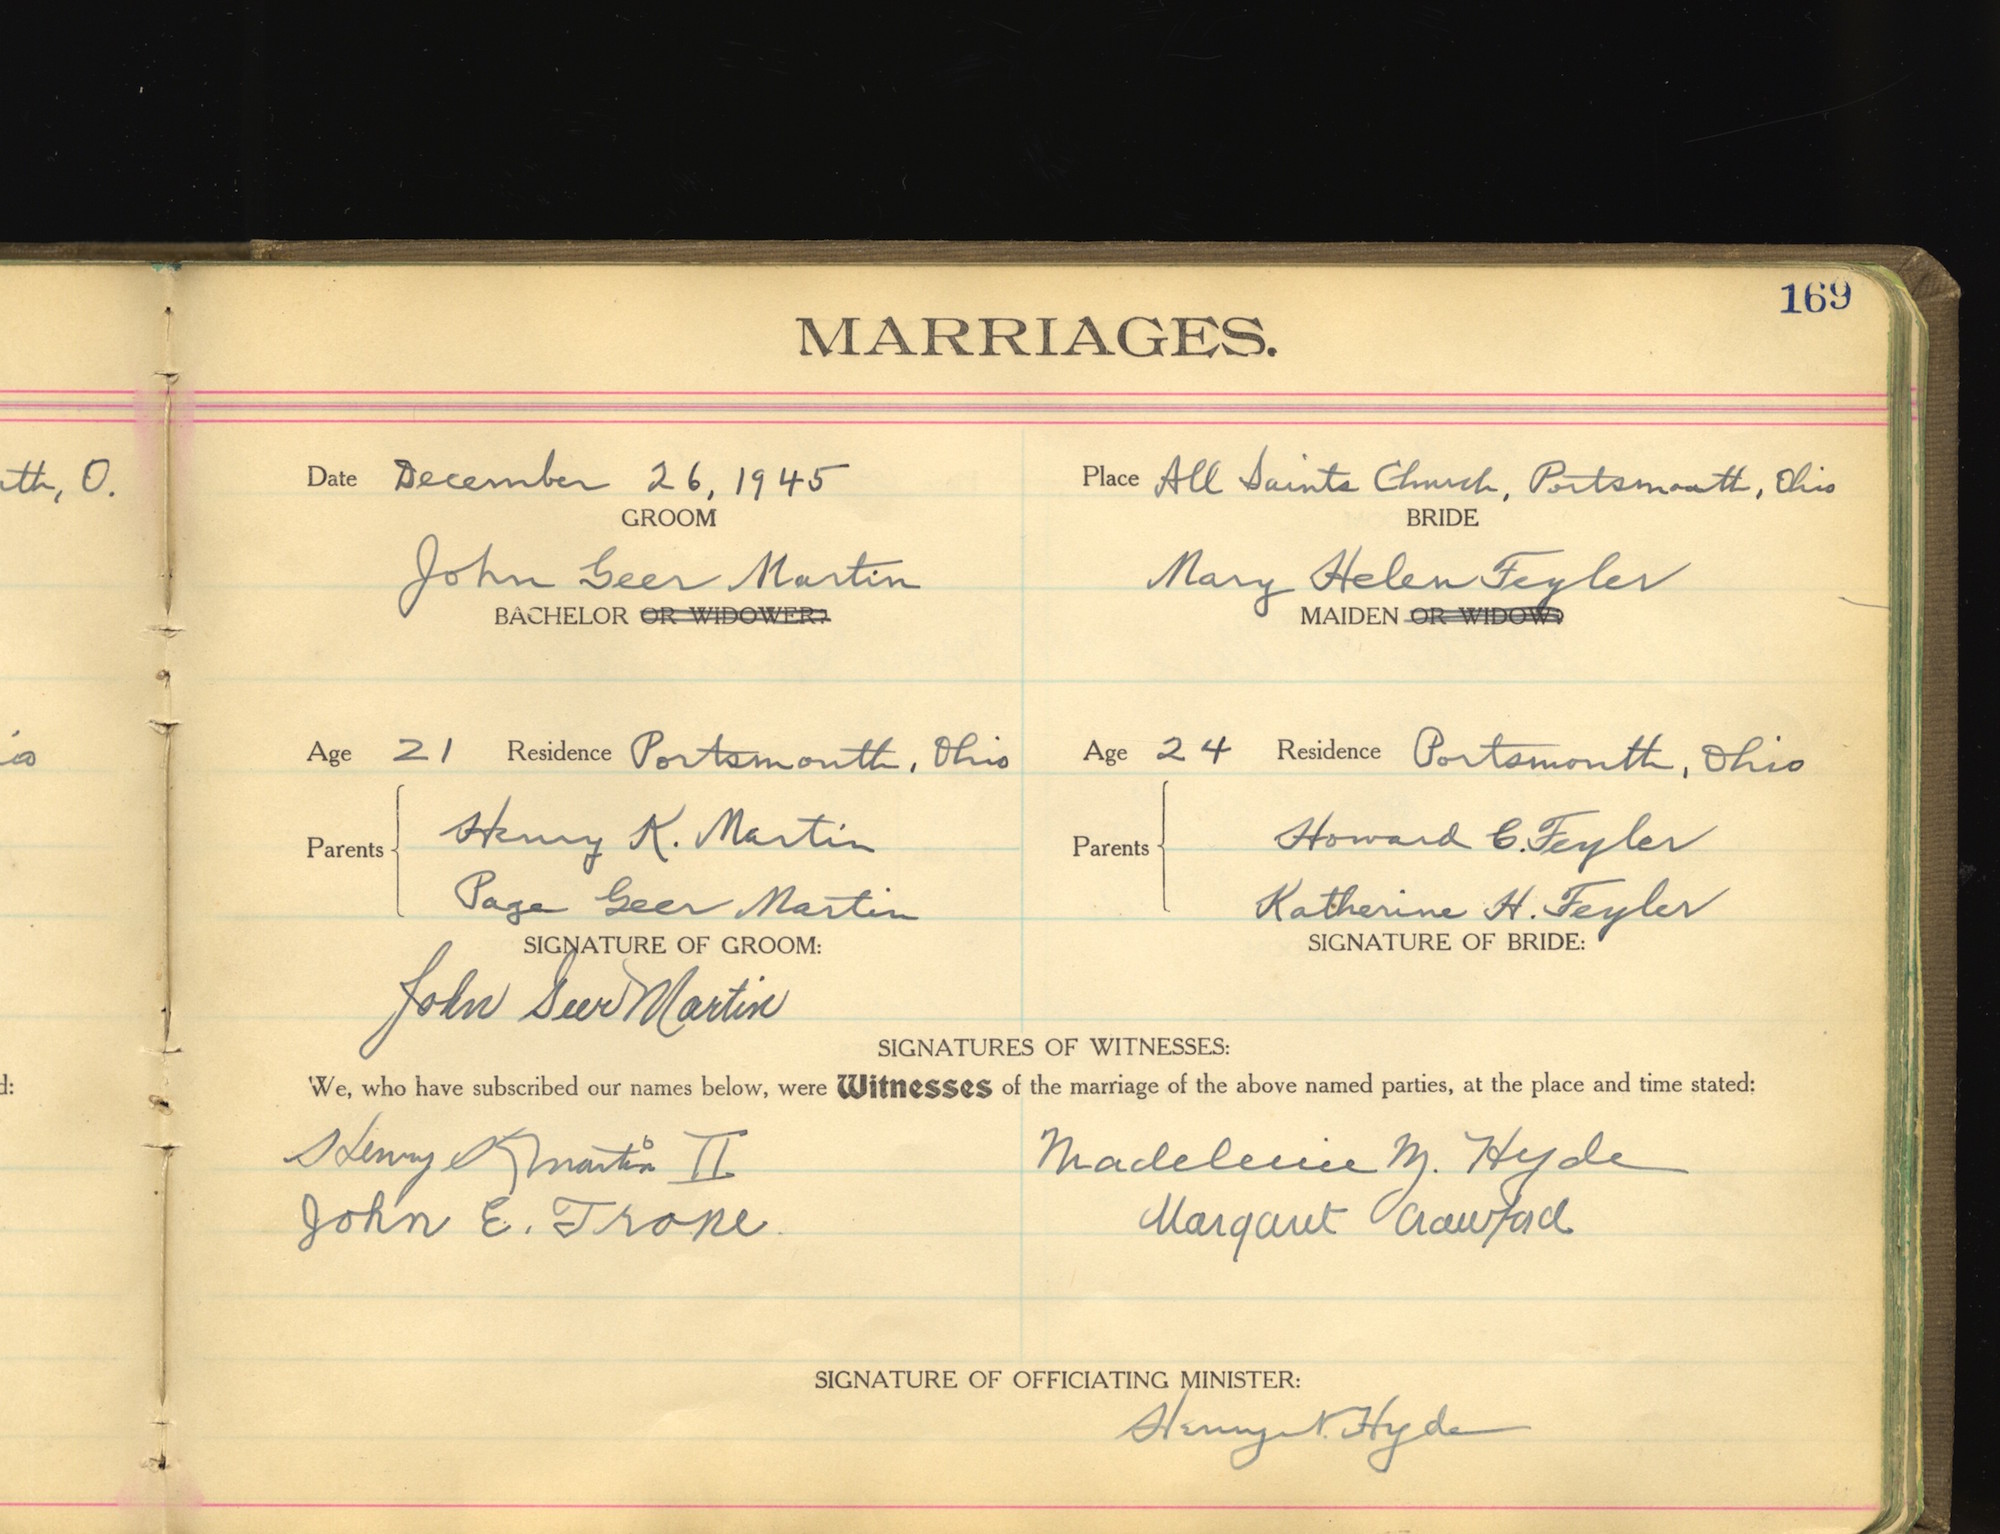 169
MARRIAGES.
th, O.
Date December 26, 1945 Place All Saints Church, Portsmouth, Ohio
GROOM BRIDE
John Geer Martin Mary Helen Feyler
BACHELOR OR WIDOWER? MAIDEN OR WIDOW?
Age 21 Residence Portsmouth, Ohio Age 24 Residence Portsmouth, Ohio
Henry K. Martin Howard C. Feyler
Parents Parents
Page Geer Martin Katherine H. Feyler
SIGNATURE OF GROOM: SIGNATURE OF BRIDE:
John Geer Martin
SIGNATURES OF WITNESSES:
d: We, who have subscribed our names below, were Witnesses of the marriage of the above named parties, at the place and time stated:
Henry K Martin II Madeleine M. Hyde
John E. Trope Margaret Crawford
SIGNATURE OF OFFICIATING MINISTER:
Henry N. Hyde